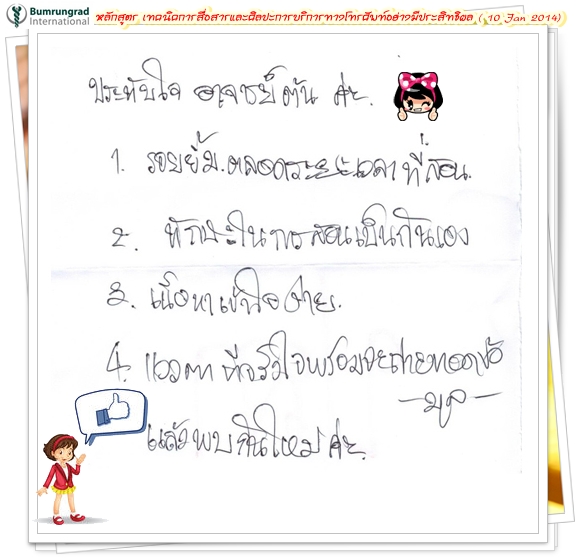 Bumrungrad
International
หลักสูตร เทคนิคการสื่อสารและศิลปะการบริการทางโทรศัพท์อย่างมีประสิทธิผล ( 10 Jan 2014)
ประทับใจ อาจารย์ต้น ค่ะ.
1. รอยยิ้ม.ตลอดระยะเวลาที่สอน.
2. ทักษะในการสอนเป็นกันเอง
3. เนื้อหาเข้าใจง่าย.
4. แววตาที่จริงใจพร้อมจะถ่ายทอดข้อ
-มูล-
แล้วพบกันใหม่ค่ะ.